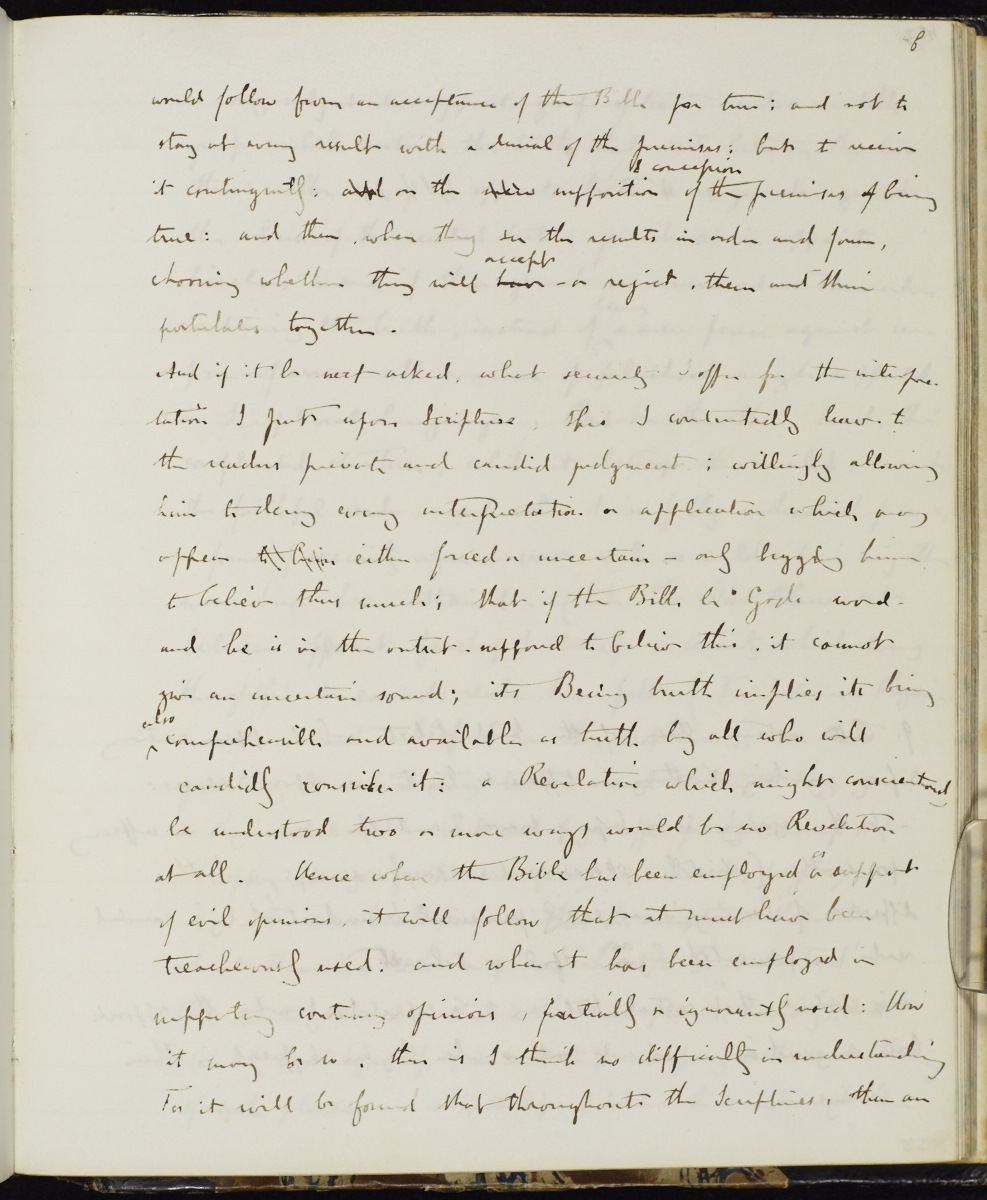 8
would follow from an acceptance of the Bible for true: and not to
stay at every result with a denial of the premises; but to receive
conception
it contingently: and on the supposition of the premises of being
true: and then, when they see the results in order and form,
accept
choosing whether they will have - or reject, them and their
postulates together.
And if it be next asked, what security I offer for the interpre-
tation I put upon Scripture, this I contentedly leave to
the readers private and candid judgment; willingly allowing
him to deny every interpretation or application which may
appear to him either forced or uncertain - only begging him
to believe thus much; that if the Bible be Gods word -
and he is in the outset - supposed to believe this, it cannot
give an uncertain sound; its Being truth implies its being
also
comprehensible and available as truth by all who will
candidly consider it: a Revelation which might conscientiously
be understood two or more ways would be no Revelation
at all. Hence when the Bible has been employed as a support
of evil opinions, it will follow that it must have been
treacherously used: and when it has been employed in
supporting contrary opinions, partially or ignorantly used: How
it may be so, there is I think no difficulty in understanding
For it will be found that throughout the Scriptures, there are